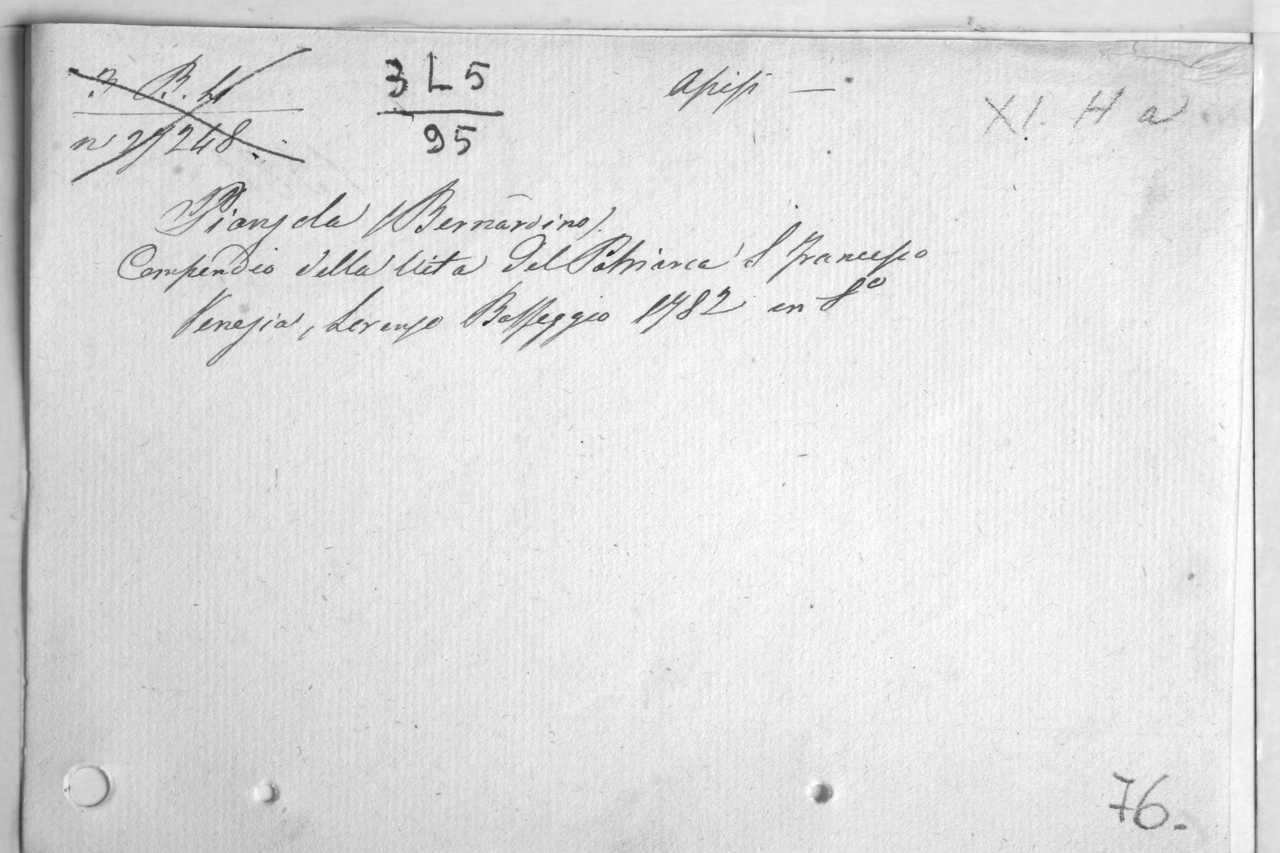 3 B. 4
n 27 248
3 L 5
95
Assisi —
XI. H a
Pianzola (Bernardino)
Compendio della Vita del Patriarca S Francesco
Venezia, Lorenzo Basseggio 1782 in 8º
76.